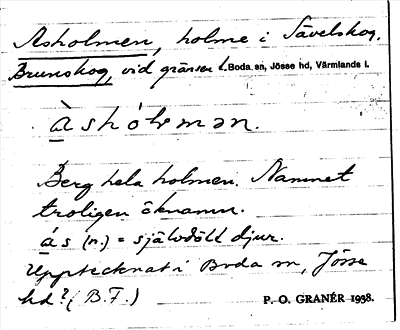 Asholmen, holme i Sävelskog.
Brunskog, vid gränsen t. Boda sn, Jösse hd, Värmlands l.
à s h ó ł m ə n.
Berg hela holmen. Namnet
troligen öknamn.
ás (n.) = självdött djur.
Upptecknat i Boda sn, Jösse
hd? (B.F.)
P. O. GRANÉR 1938.